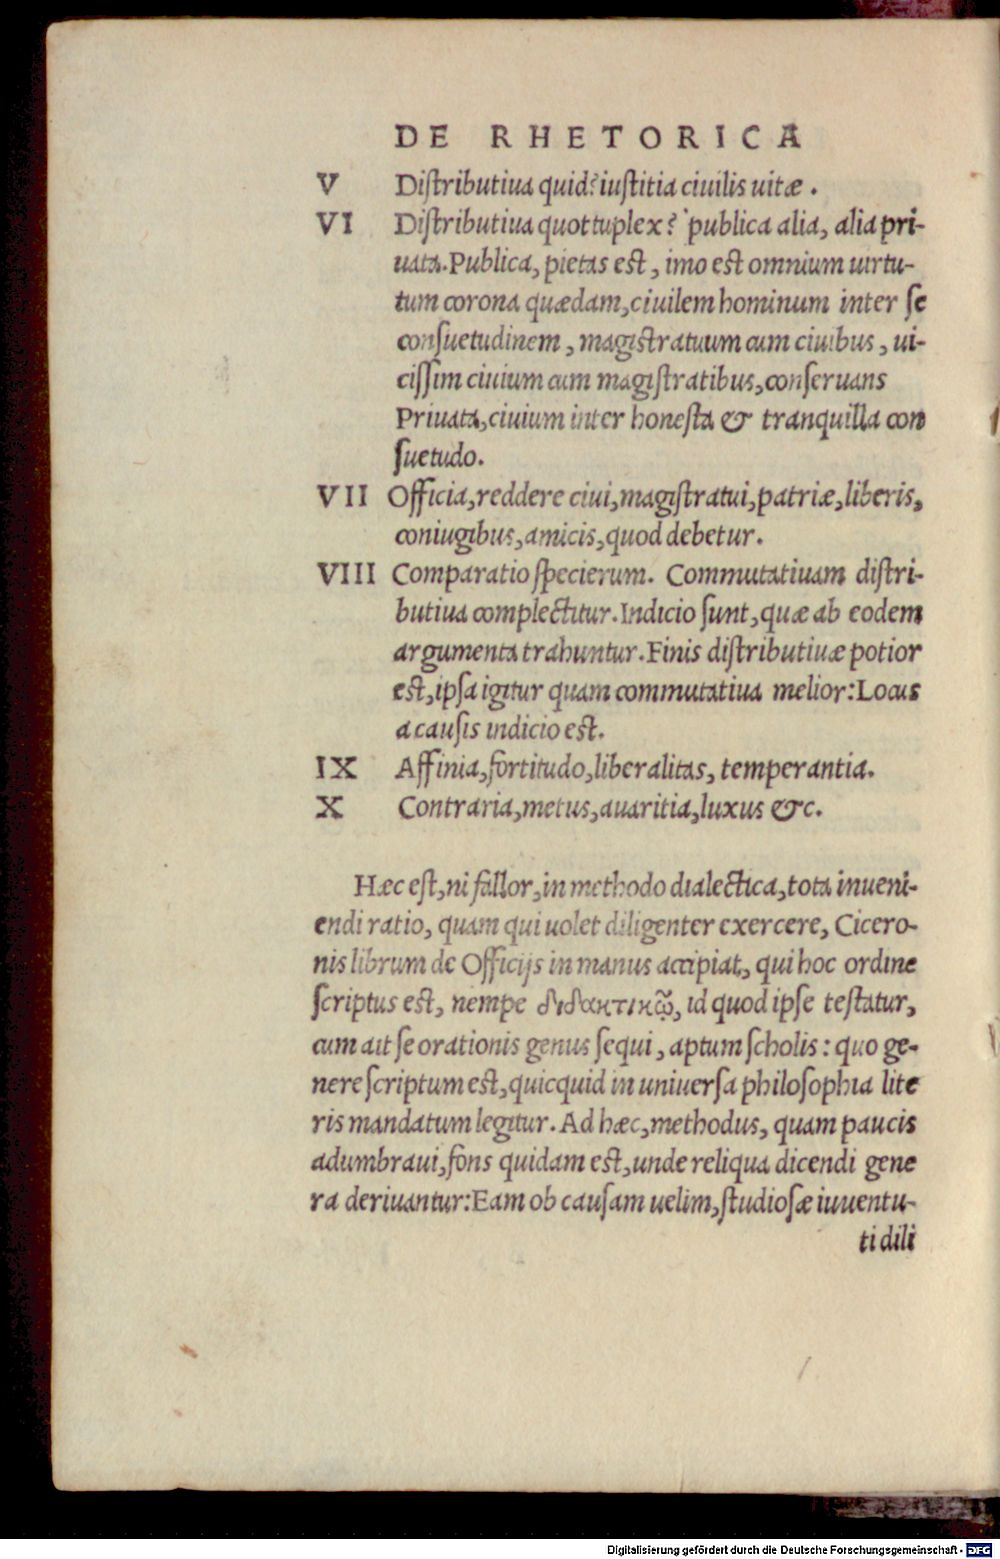 DE RHETORICA
V Distributiua quid? iustitia ciuilis uitæ.
VI Distributiua quottuplex? publica alia, alia pri-
uata. Publica, pietas est, imo est omnium uirtu-
tum corona quædam, ciuilem hominum inter se
consuetudinem, magistratuum cum ciuibus, ui-
cissim ciuium cum magistratibus, conseruans
Priuata, ciuium inter honesta & tranquilla con
suetudo.
VII Officia, reddere ciui, magistratui, patriæ, liberis,
coniugibus, amicis, quod debetur.
VIII Comparatio specierum. Commutatiuam distri-
butiua complectitur. Indicio sunt, quæ ab eodem
argumenta trahuntur. Finis distributiuæ potior
est, ipsa igitur quam commutatiua melior: Locus
a causis indicio est.
IX Affinia, fortitudo, liberalitas, temperantia.
X Contraria, metus, auaritia, luxus &c.
Hæc est, ni fallor, in methodo dialectica, tota inueni-
endi ratio, quam qui uolet diligenter exercere, Cicero-
nis librum de Officijs in manus accipiat, qui hoc ordine
scriptus est, nempe διδακτικῷ, id quod ipse testatur,
cum ait se orationis genus sequi, aptum scholis: quo ge-
nere scriptum est, quicquid in uniuersa philosophia lite
ris mandatum legitur. Ad hæc, methodus, quam paucis
adumbraui, fons quidam est, unde reliqua dicendi gene
ra deriuantur: Eam ob causam uelim, studiosæ iuuentu-
ti dili
Digitalisierung gefördert durch die Deutsche Forschungsgemeinschaft - DFG